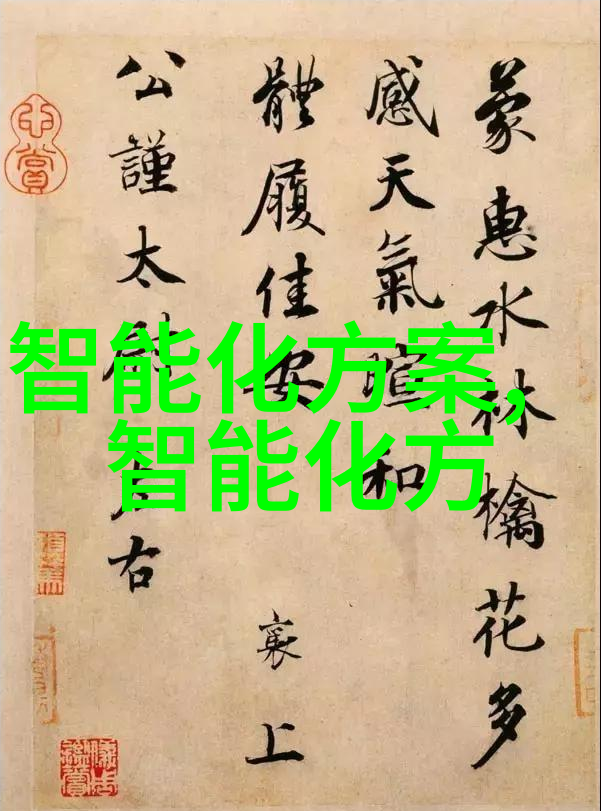 蒙惠水林檎花多
感天氣暄和
體履佳安
襄上
公謹太尉左右
智能化方案,
智能化方